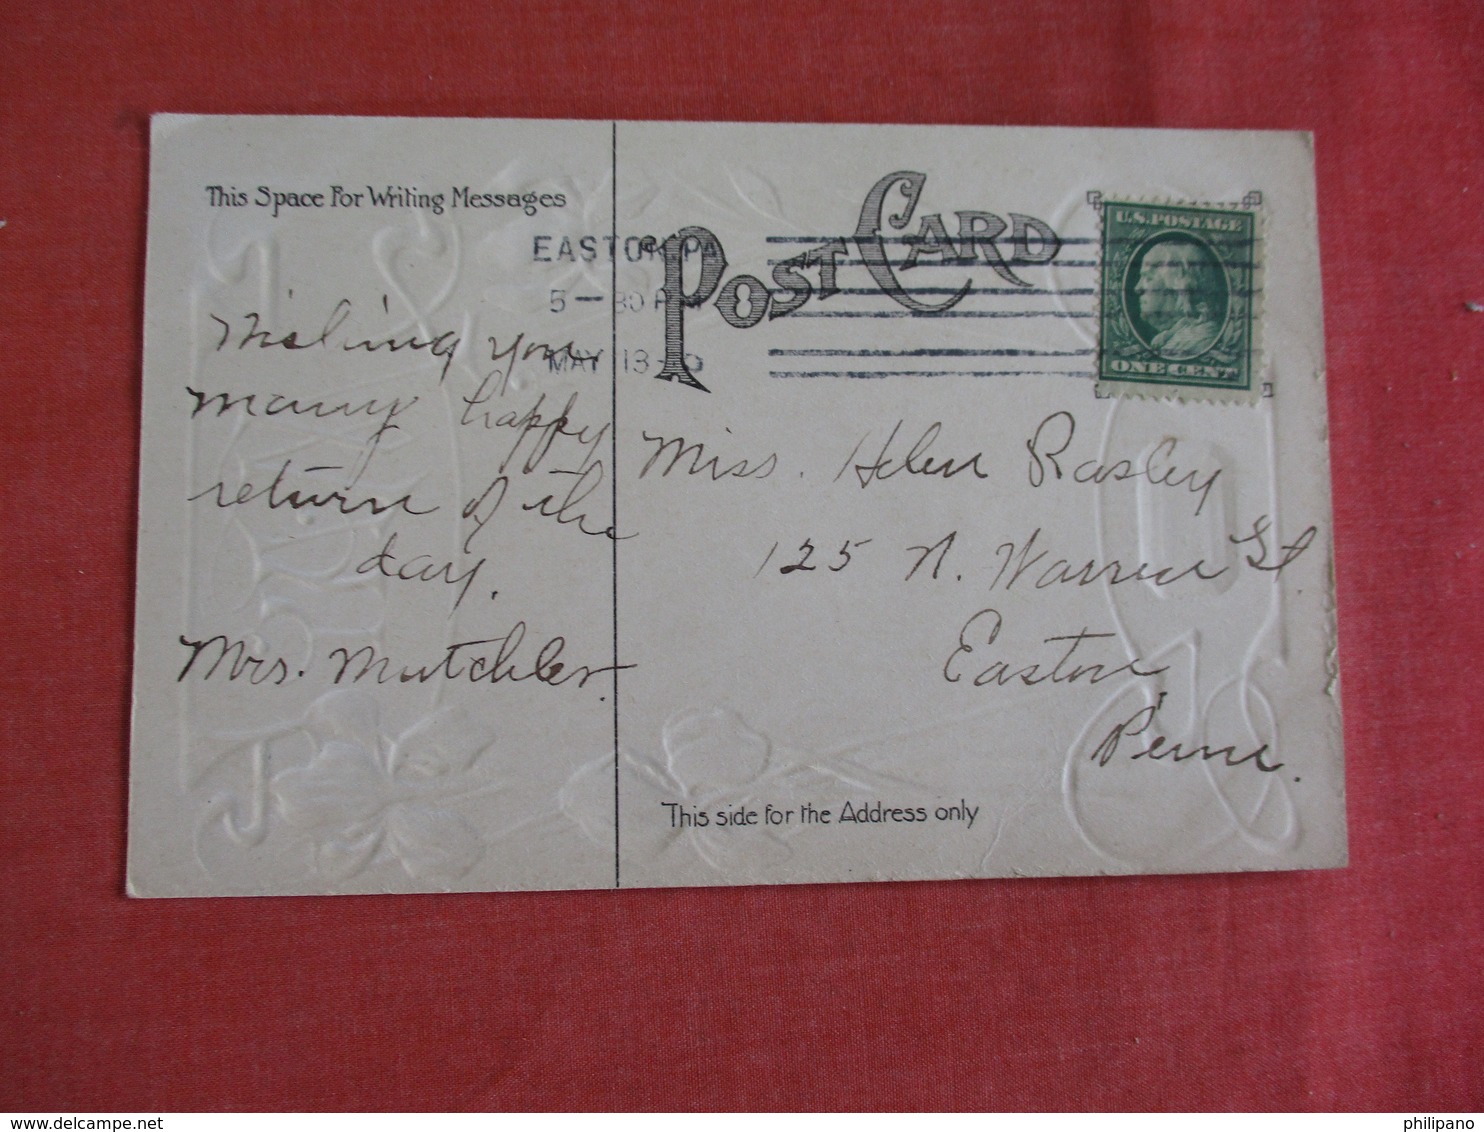 This Space For Writing Messages
POST CARD
EASTON, PA
5 — 30 PM
MAY 13
U.S. POSTAGE
ONE CENT
Wishing you
many happy
return of the
day.
Mrs. Mutchler.
Miss. Helen Rasley
125 N. Warren St
Easton
Penn.
This side for the Address only
delcampe.net
philipano